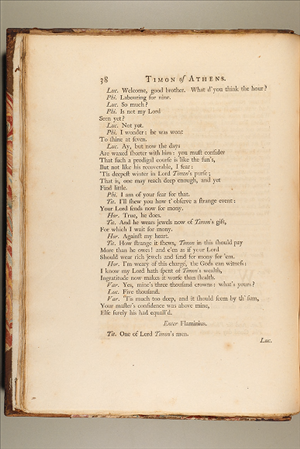 38 TIMON of ATHENS.
Luc. Welcome, good brother. What d'you think the hour?
Phi. Labouring for nine.
Luc. So much?
Phi. Is not my Lord
Seen yet?
Luc. Not yet.
Phi. I wonder: he was wont
To shine at seven.
Luc. Ay, but now the days
Are waxed shorter with him: you must consider
That such a prodigal course is like the sun's,
But not like his recoverable, I fear:
'Tis deepest winter in Lord Timon's purse;
That is, one may reach deep enough, and yet
Find little.
Phi. I am of your fear for that.
Tit. I'll shew you how t' observe a strange event:
Your Lord sends now for mony.
Hor. True, he does.
Tit. And he wears jewels now of Timon's gift,
For which I wait for mony.
Hor. Against my heart.
Tit. How strange it shews, Timon in this should pay
More than he owes! and e'en as if your Lord
Should wear rich jewels and send for mony for 'em.
Hor. I'm weary of this charge, the Gods can witness:
I know my Lord hath spent of Timon's wealth,
Ingratitude now makes it worse than stealth.
Var. Yes, mine's three thousand crowns: what's yours?
Luc. Five thousand.
Var. 'Tis much too deep, and it should seem by th' sum,
Your master's confidence was above mine,
Else surely his had equall'd.
Enter Flaminius.
Tit. One of Lord Timon's men.
Luc.